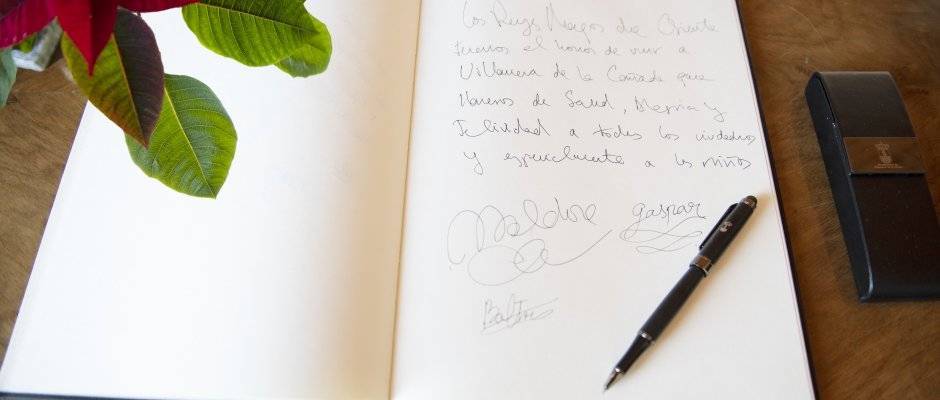 Los Reyes Magos de Oriente
tienen el honor de venir a
Villanueva de la Cañada para
llenaros de Salud, Alegria y
Felicidad a todos los ciudadanos
y especialmente a los niños
Melchor gaspar
Balt